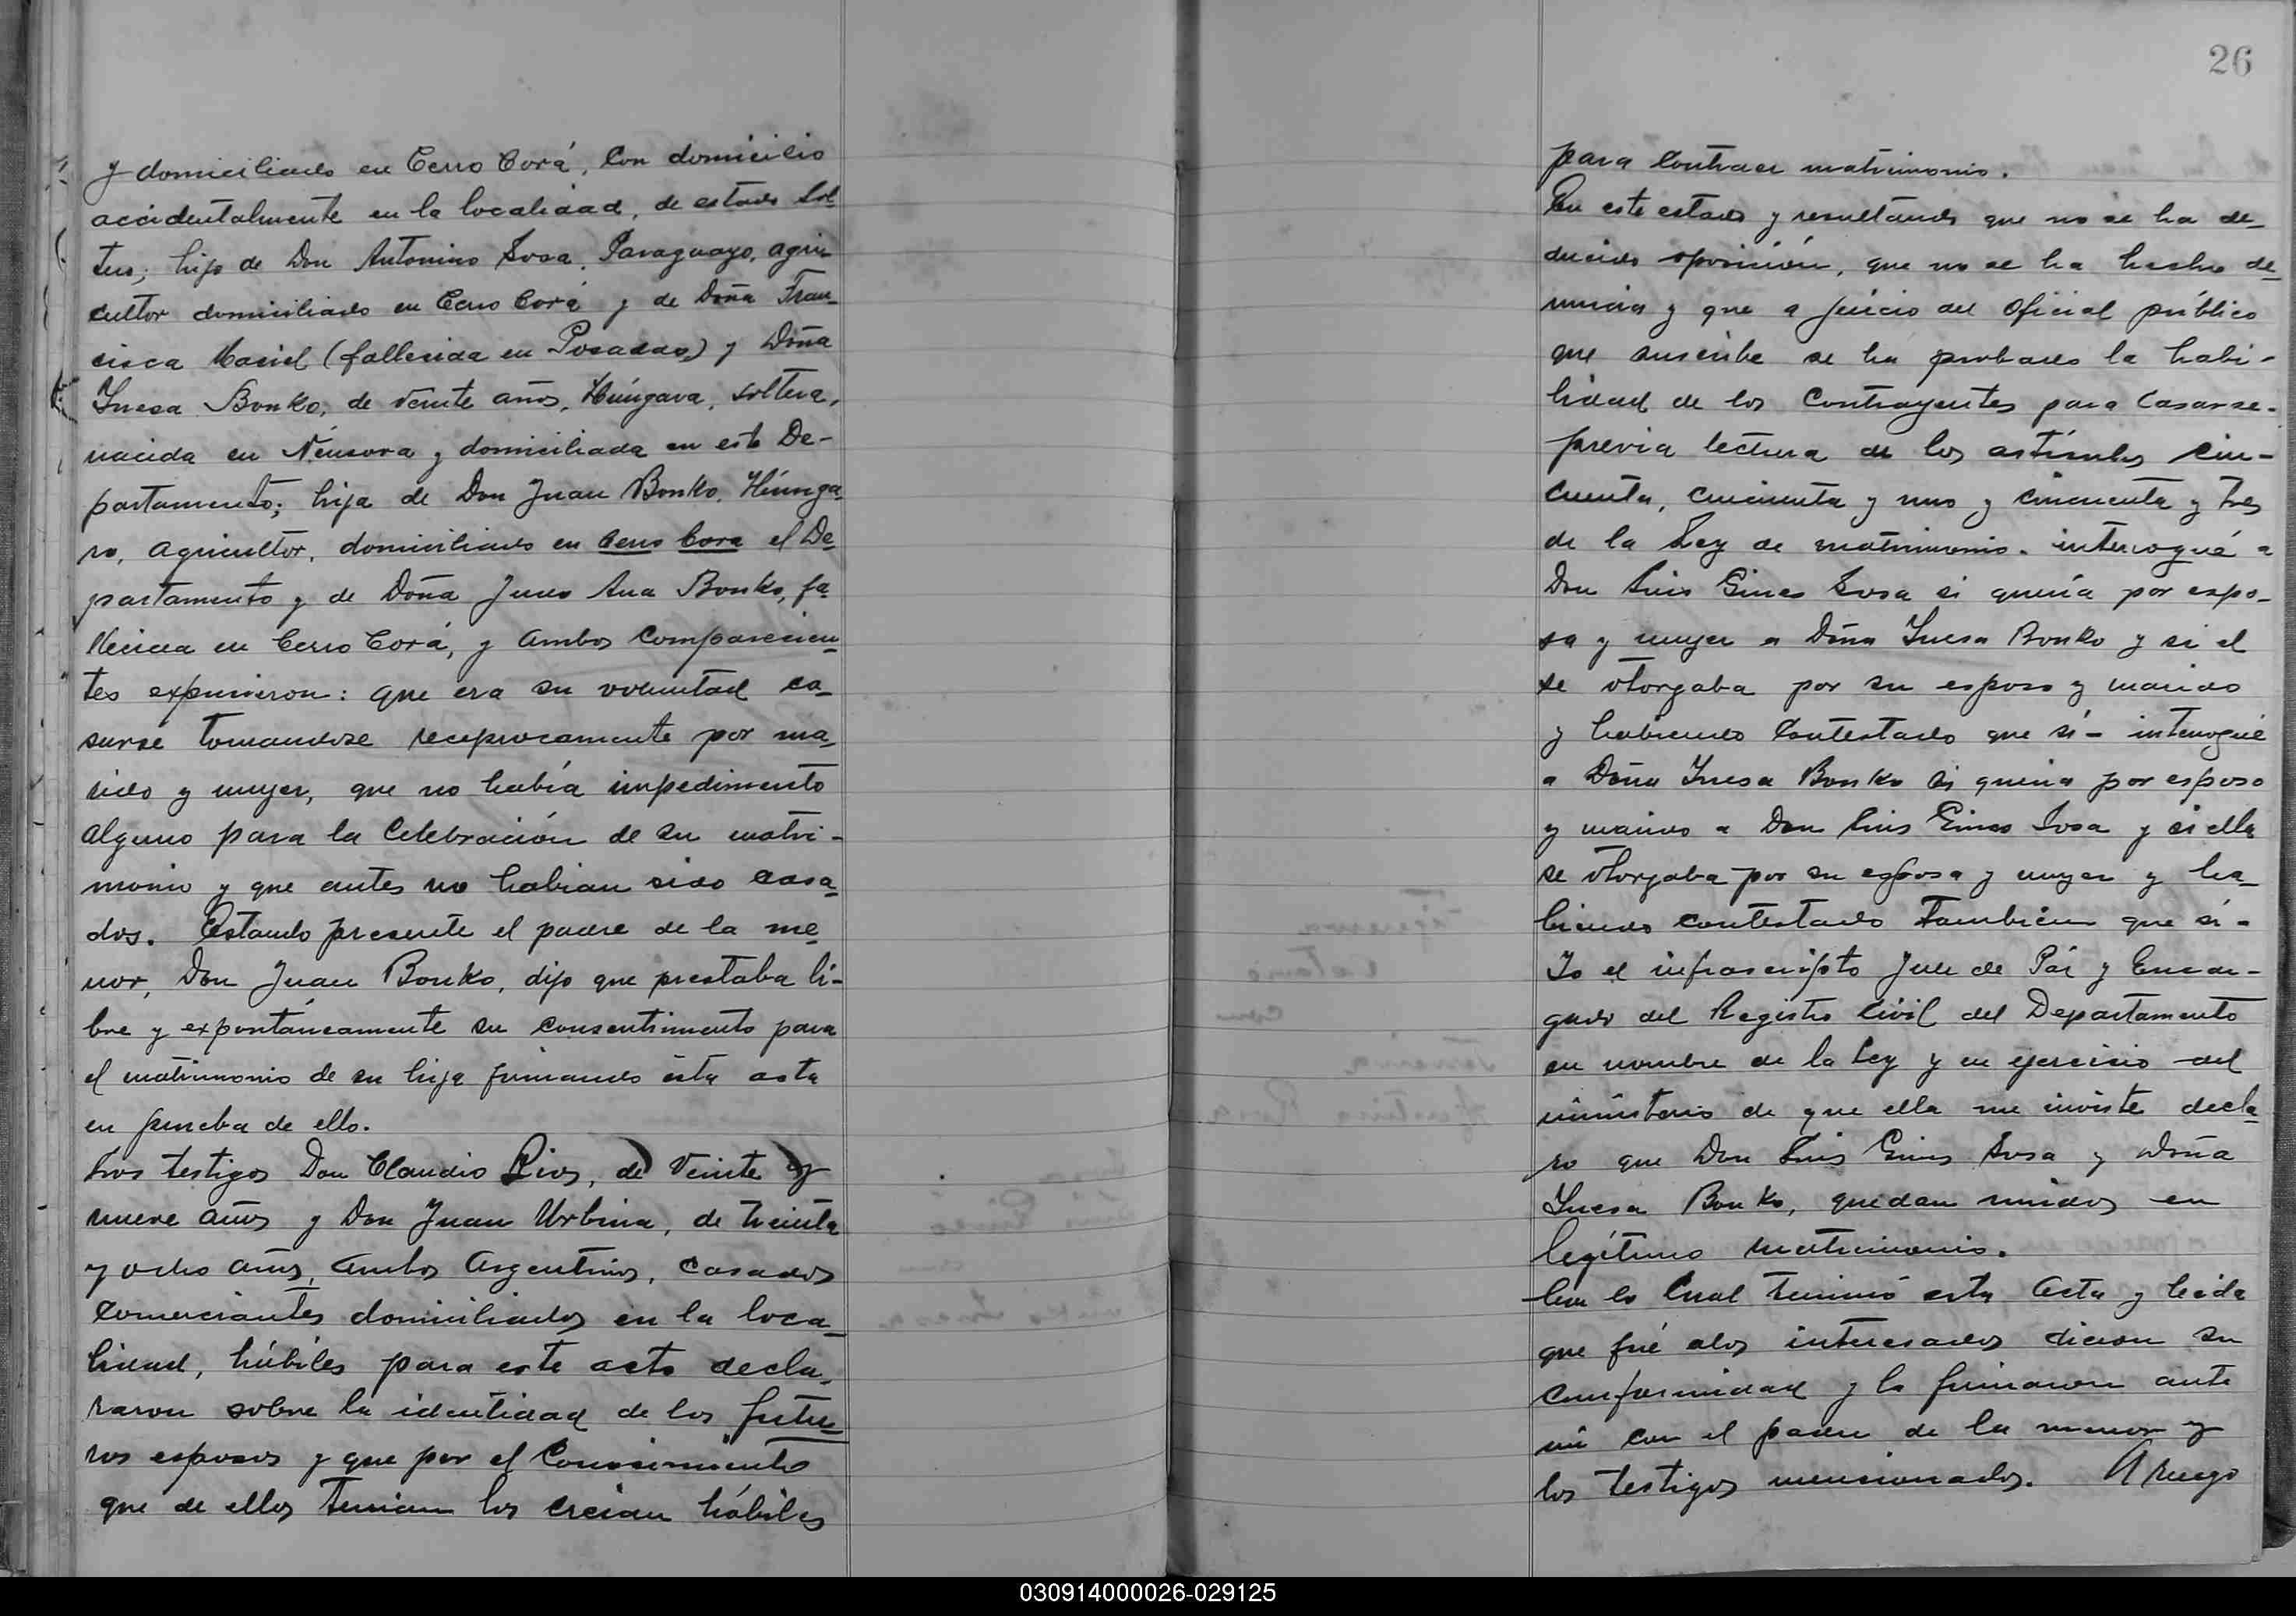 y domiciliado en Cerro Corá, Con domicilio
accidentalmente en la localidad, de estado sol
tero; hijo de Don Antonino Sosa, Paraguayo, agri
cultor domiciliado en Cerro Corá y de Doña Fran-
cisca Maciel (fallecida en Posadas) y Doña
Inesa Bonko, de veinte años, Húngara, soltera,
nacida en y domiciliada en este De-
partamento; hija de Don Juan Bonko, Húnga
ro, agricultor, domiciliado en Cerro Cora el De-
partamento y de Doña Ana Bonko, fa-
llecida en Cerro Corá, y ambos Comparecien-
tes expusieron: que era su voluntad ca-
sarse tomandose reciprocamente por ma-
rido y mujer, que no había impedimento
alguno para la Celebración de su matri-
monio y que antes no habian sido casa-
dos. Estando presente el padre de la me-
nor, Don Juan Bonko, dijo que prestaba li-
bre y expontáneamente su consentimiento para
el matrimonio de su hija firmando ésta acta
en prueba de ello.
Los testigos Don Claudio Rios, de veinte y
nueve años y Don Juan Urbina, de treinta
y ocho años, ambos Argentinos, casados
comerciantes domiciliados en la loca-
lidad, hábiles para este acto decla-
raron sobre la identidad de los futu-
ros esposos y que por el Conocimiento
que de ellos tenian los creian hábiles
26
para Contraer matrimonio.
En este estado y resultando que no se ha de-
ducido oposición, que no se ha hecho de-
nuncia y que a juicio del Oficial público
que suscribe se ha probado la habi-
lidad de los Contrayentes para Casarse-
previa lectura de los artículos cin-
cuenta, cincuenta y uno y cincuenta y tres
de la Ley de matrimonio. interrogué a
Don Luis Gines Sosa si quería por espo-
sa y mujer a Doña Inesa Bonko y si el
se otorgaba por su esposo y marido
y habiendo Contestado que sí- interrogué
a Doña Inesa Bonko si queria por esposo
y marido a Don Luis Gines Sosa y si ella
se otorgaba por su esposa y mujer y ha-
biendo contestado tambien que sí-
Yo el infrascripto Juez de Páz y Encar-
gado del Registro Civil del Departamento
en nombre de la Ley y en ejercicio del
ministerio de que ella me inviste decla-
ro que Don Luis Gines Sosa y Doña
Inesa Bonko, quedan unidos en
legítimo matrimonio.
Con lo Cual terminó esta Acta y leida
que fué a los interesados dieron su
conformidad y la firmaron ante
mi con el padre de la menor y
los testigos mencionados. A ruego
030914000026-029125